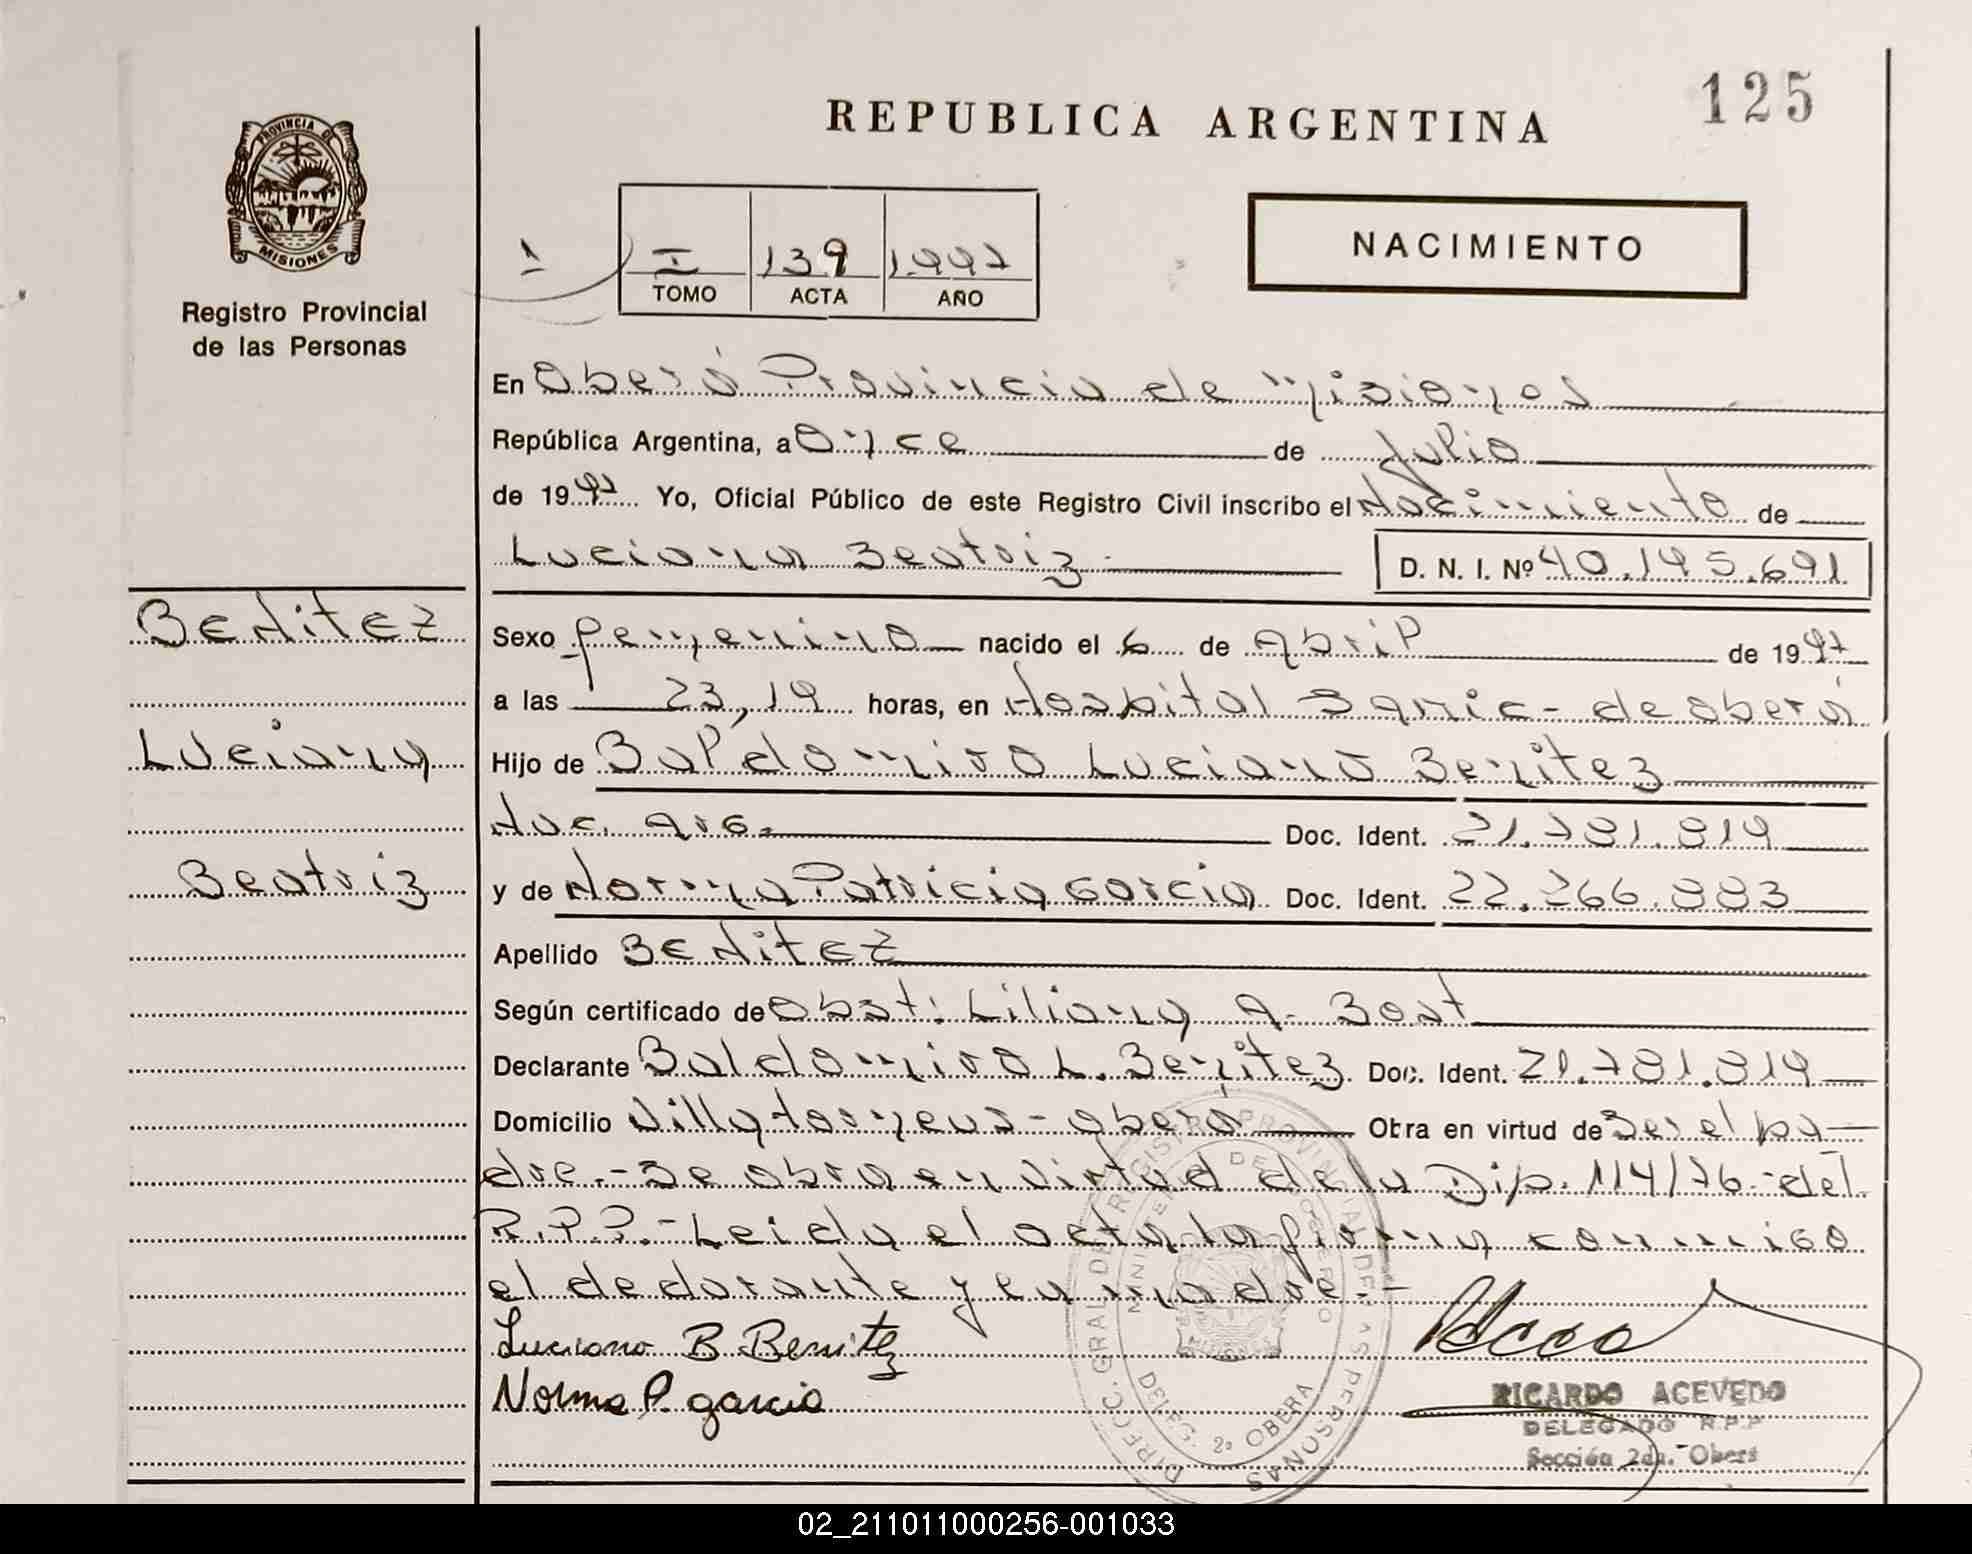 125
REPUBLICA ARGENTINA
PROVINCIA DE
MISIONES
Registro Provincial
de las Personas
NACIMIENTO
I 139 1.997
TOMO ACTA AÑO
En Oberá Provincia de Misiones
República Argentina, a Once de Julio
de 1997 Yo, Oficial Público de este Registro Civil inscribo el Nacimiento de
Luciana Beatriz D. N. I. Nº 40.145.691
Benitez
Luciana
Beatriz
Sexo femenino nacido el 6 de Abril de 1997
a las 23,19 horas, en Hospital Samic - de Oberá
Hijo de Baldomiro Luciano Benitez
Nac. Arg. Doc. Ident. 21.781.819
y de Norma Patricia Garcia Doc. Ident. 22.266.883
Apellido Benitez
Según certificado de Obst: Liliana A. Bost
Declarante Baldomiro L. Benitez Doc. Ident. 21.781.819
Domicilio Villa - Oberá Obra en virtud de Ser el pa-
dre.- Se obra en virtud de la Dip. 114/76.- del
R.P.P.- Leida el acta la firma conmigo
el declarante y en madre.-
Luciano B. Benitez
Norma P. garcia
DIRECC. GRAL DE REGISTRO PROVINCIAL DE LAS PERSONAS
DELEG. 2º OBERA
RICARDO ACEVEDO
DELEGADO R.P.P
Sección 2da. - Oberá
02_211011000256-001033